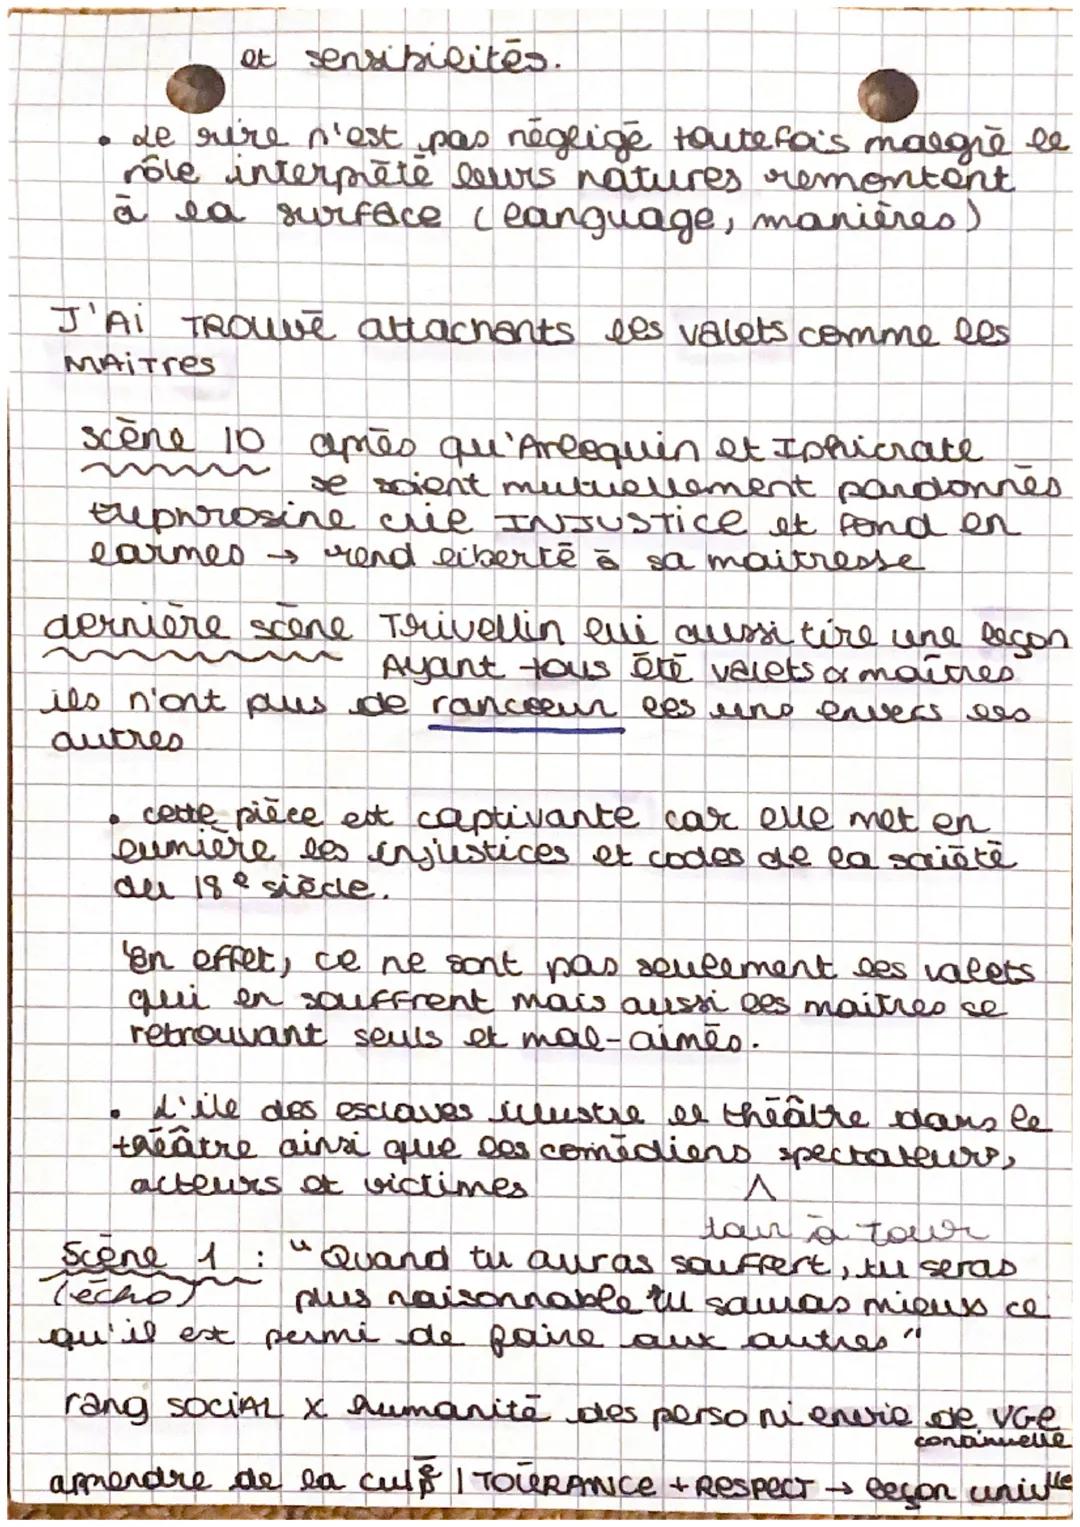 et sensibilités.
• Le rire n'est pas négligé toutefois malgré le
rôle interprété leurs natures remontent
à la surface (language, manières)
J'Ai TROUVÉ attachants les valets comme les
MAiTres
scène 10 après qu'Arlequin et Iphicrate
se soient mutuellement pardonnés
Euphrosine crie INJUSTICE et fond en
larmes → rend liberté à sa maitresse
dernière scène Trivellin lui aussi tire une leçon
Ayant tous été valets & maîtres
ils n'ont plus de rancoeur les uns envers les
autres
• cette pièce est captivante car elle met en
lumière les injustices et codes de la société
du 18e siècle.
En effet, ce ne sont pas seulement les valets
qui en souffrent mais aussi les maitres se
retrouvant seuls et mal-aimés.
• L'île des esclaves illustre le théâtre dans le
théâtre ainsi que les comédiens spectateurs,
acteurs et victimes ^
tour à tour
Scène 1 : "Quand tu auras souffert, tu seras
(écho) plus raisonnable tu sauras mieux ce
qu'il est permi de faire aux autres"
rang sociAL x humanité des perso ni envie de VGe
continuelle
apprendre de la TOLERANCE + RESPECT → leçon univlle